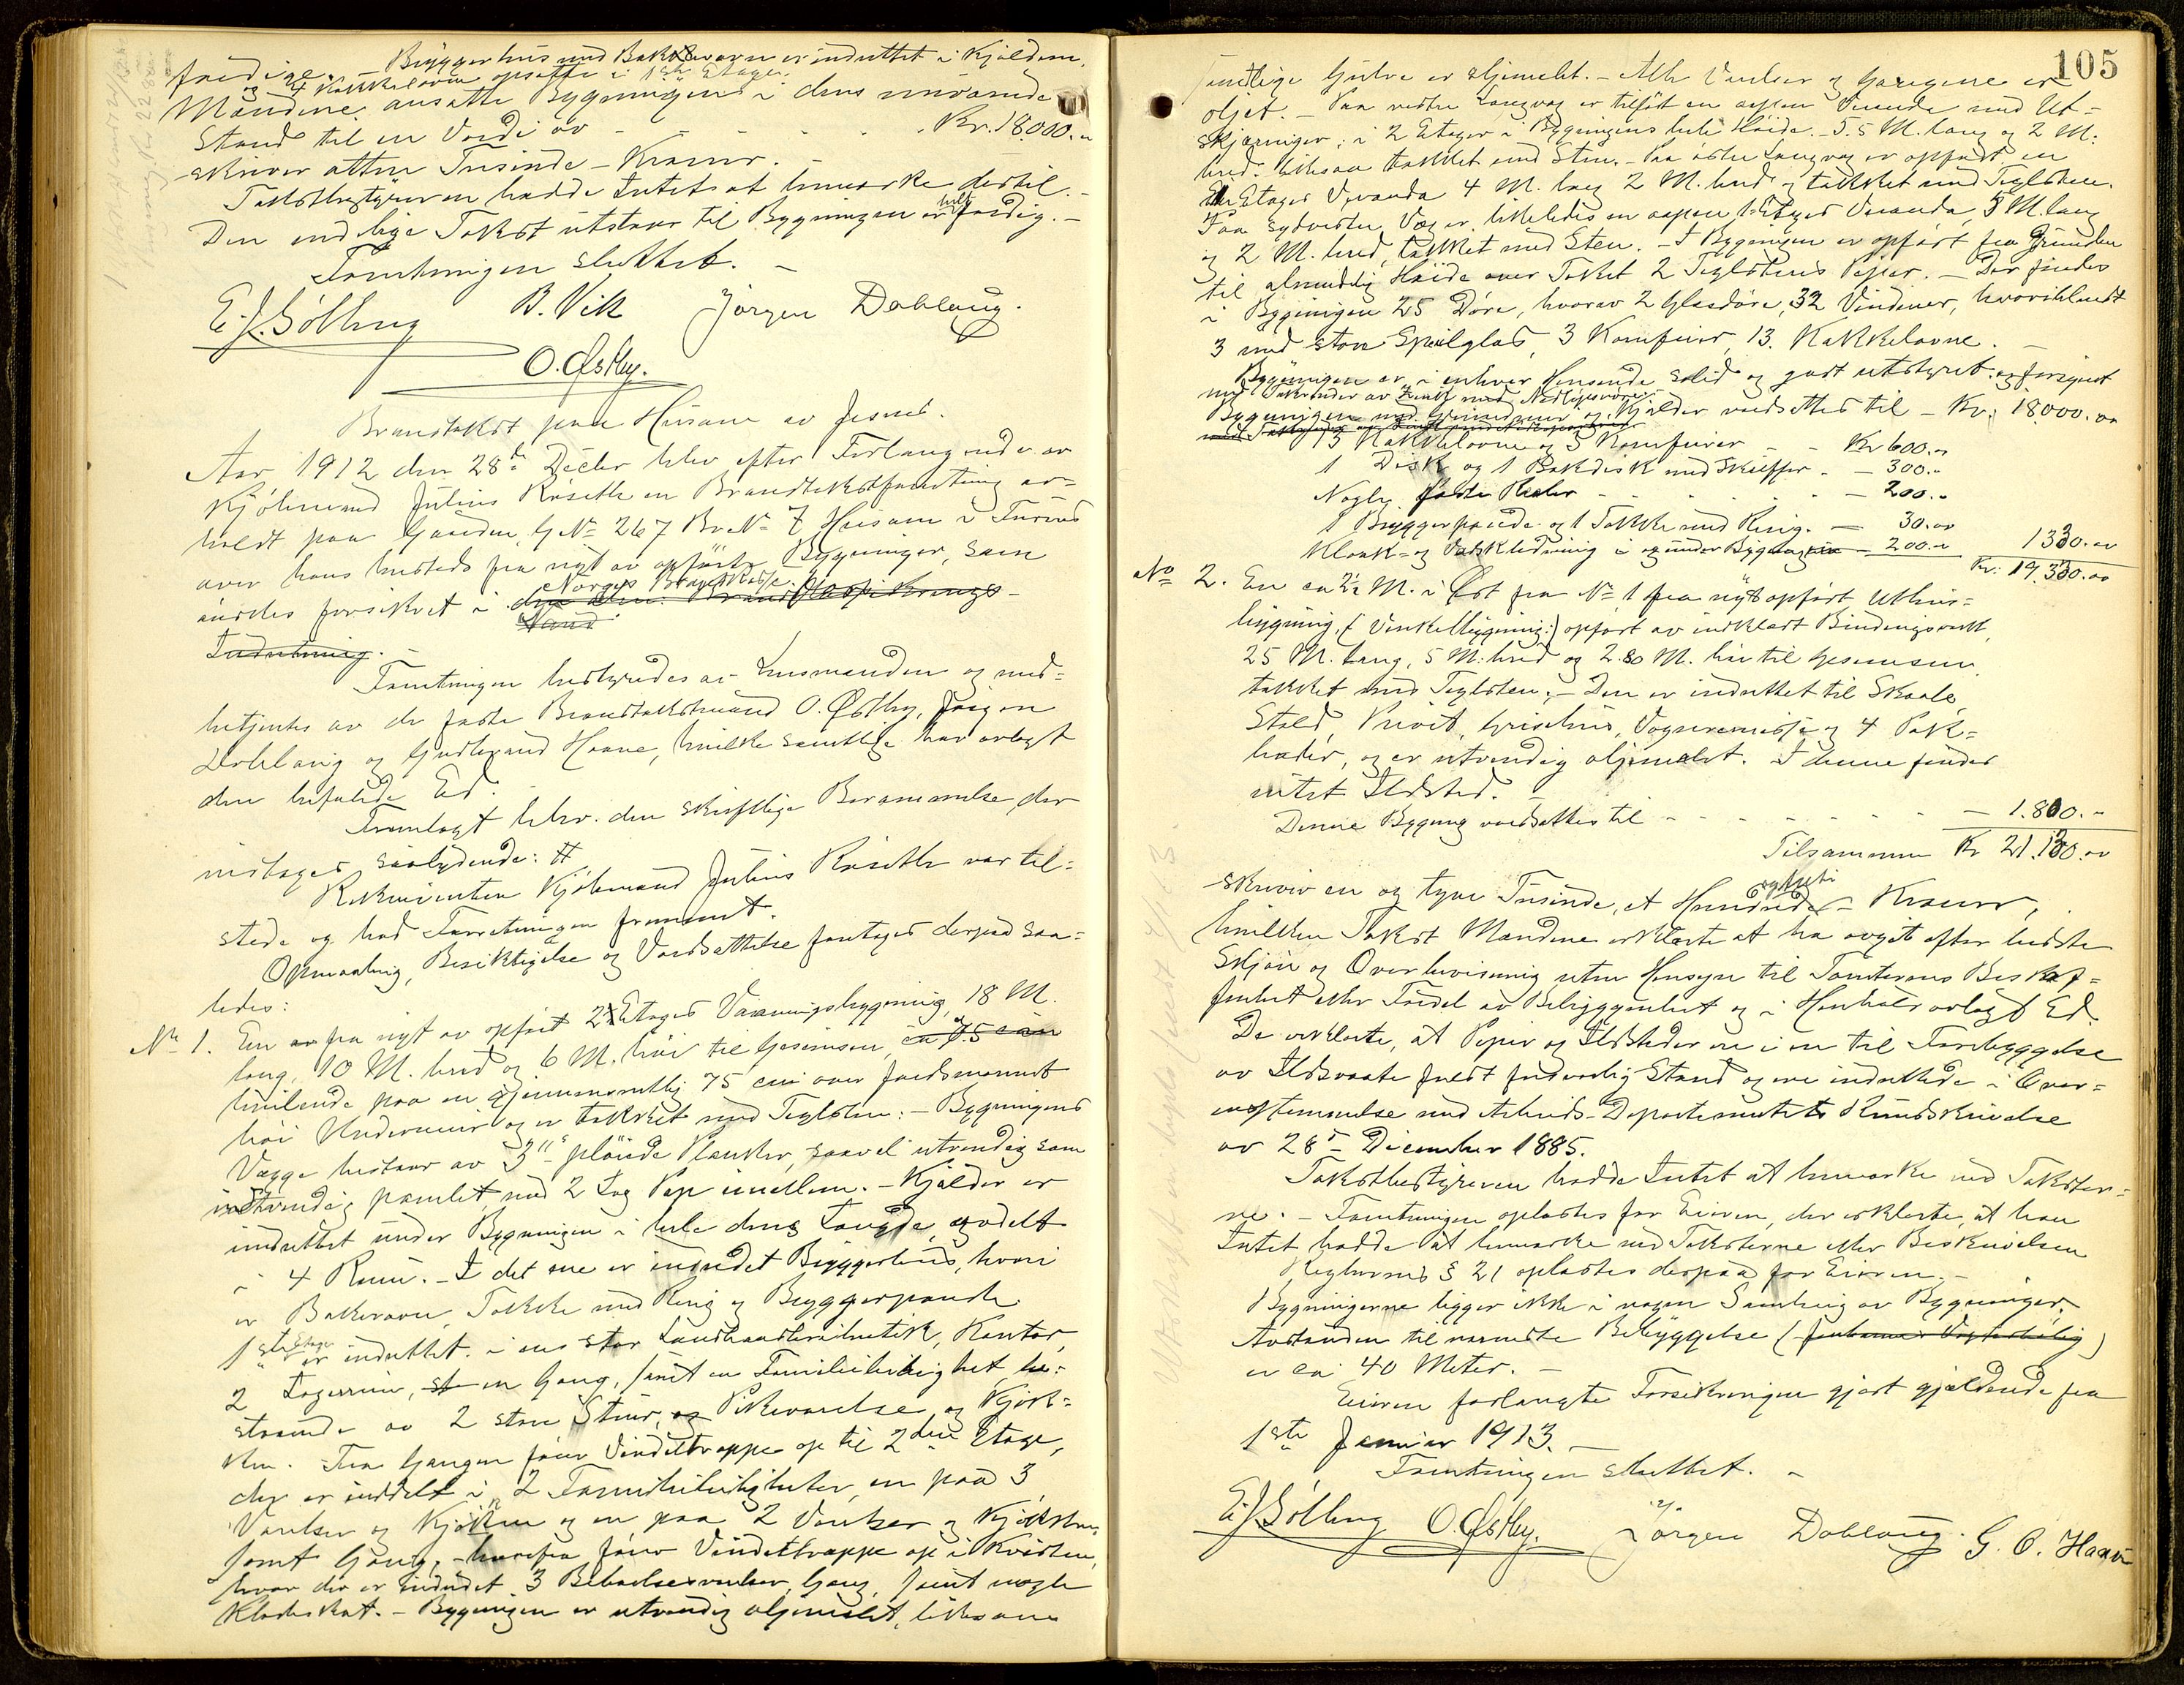 færdige. Bryggerhus med Bakerovn er indrettet i Kjælderen.
og 4 Kakkelovne opsatte i 1ste Etage.
Mændene ansatte Bygningens i dens nuværende
Stand til en Værdi av - - - - Kr. 18000.00
skriver atten Tusinde - Kroner. -
Takstbestyreren hadde Intet at bemærke dertil. -
Den endelige Takst utstaar til Bygningen er helt færdig. -
Forretningen sluttet. -
E. J. Sölling B. Vik Jörgen Doblaug.
O. Østby.
Brandtakst paa Husum av Jesnes.
Aar 1912 den 28de Decbr blev efter Forlangende av
Kjöbmand Julius Röseth en Brandtakstforretning av=
holdt paa Gaarden, G No 267 Br No 7 Husum i Furnes
over hans husteds fra nyt av opførte Bygninger, som
Norges Brandkasse.
önskes forsikret i den alm. Brandforsikrings-
Indretning. -
Forretningen bestyredes av Lensmanden og med=
betjentes av de faste Brandtakstmænd O. Østby, Jörgen
Doblaug og Gudbrand Haave, hvilke samtlige har avlagt
den befalede Ed.
Fremlagt blev den skriftlige Berammelse, der
indtages saalydende: #
Rekvirenten Kjöbmand Julius Röseth var til=
stede og hos Forretningen fremmet.
Opmaaling, Besiktigelse og Værdsættelse foretages derpaa saa=
ledes:
No 1. En av fra nyt av opført 2 Etages Vaaningsbygning, 18 M.
lang, 10 M. bred og 6 M. höi til Gesimsen,
hvilende paa en gjennemsnitlig 75 cm over Jordsmonnet
höi Undermur og er tækket med Teglsten: - Bygningens
Vægge bestaar av 3" pløiede Planker, saavel utvendig som
indvendig panelet, med 2 Lag Pap imellem. - Kjælder er
indrettet under Bygningen i hele dens Længde, og delt
i 4 Rum. - I det ene er indredet Bryggerhus, hvori
er Bakerovn, Takke med Ring og Bryggerpande.
1ste Etage er indrettet i en stor Landhandlerbutik, Kontor,
2 Lagerrum, en Gang, samt en Familieleilighet, be=
staaende av 2 store Stuer, Pikeværelse og Kjök=
ken. Fra Gangen förer Vindeltrappe op til 2den Etage,
der er inddelt i 2 Familieleiligheter, en paa 3
Værelser og Kjökken og en paa 2 Værelser og Kjökken,
samt Gang, - hvorfra förer Vindeltrappe op i Kvisten,
hvor der er indredet 3 Beboelsesværelser, Gang, samt nogle
Klæskot. - Bygningen er utvendig oljemalet, likesom
105
samtlige Gulve er oljemalt. - Alle Værelser og Gangene er
oljet. - Paa vestre Langvæg er tilföiet en aapen Veranda med Ut=
skjæringer; i 2 Etager i Bygningens hele Höide. - 5.5 M. lang og 2 M.
bred. likesaa tækket med Sten. - Paa östre Langvæg er opført en
1 Etages Veranda 4 M. lang 2 M. bred og tækket med Teglsten.
Paa sydvestre Væg er likeledes en aapen 1 Etages Veranda, 3 M. lang
og 2 M. bred, tækket med Sten. - I Bygningen er opført fra Grunden
til almindelig Höide over Taket 2 Teglstens Piper. - Der findes
i Bygningen 25 Døre, hvorav 2 Glasdøre, 32 Vinduer, hvoriblandt
3 med store Speilglas, 3 Komfurer, 13. Kakkelovne. -
Bygningen er i enhver Henseende solid og godt utstyret og forsynet
med Takrender av Zink med Nedløpsrører
Bygningen med Grundmur og Kjælder værdsættes til - Kr. 18000.00
13 Kakkelovne og 3 Komfurer - - Kr 600.00
1 Disk og 1 Bakdisk med Skuffer - - 300.-
Nogle faste Reoler - - - - - 200.-
1 Bryggerpande og 1 Takke med Ring. - 30.00
Kloak- og Vaskledning i og under Bygningen - 200.- 1330.00
Kr. 19.330.00
No 2. En ca 2½ M. i Øst fra No 1 fra nyt opført Uthus=
bygning, (Vinkelbygning:) opført av indklædt Bindingsverk,
25 M. lang, 5 M. bred og 2.80 M. höi til Gesimsen,
tækket med Teglsten. - Den er indrettet til Skaale,
Stald, Privét, Grisehus, Vognremisse og 4 Pak=
boder, og er utvendig oljemalet. I denne findes
intet Ildsted. -
Denne Bygning værdsættes til - - - - - 1.800.-
Tilsammen Kr 21.130.00
skriver en og tyve Tusinde, et Hundrede og treti - Kroner,
hvilken Takst Mændene erklærte at ha avgit efter bedste
Skjön og Overbevisning uten Hensyn til Tomternes Beskaf=
fenhet eller Fordel av Beliggenhet og i Henhold avlagt Ed.
De erklærte, at Piper og Ildsteder er i en til Forebyggelse
av Ildsvaade fuldt forsvarlig Stand og er indrettede i Over=
ensstemmelse med Arbeids-Departementets Rundskrivelse
av 28de December 1885.
Takstbestyreren hadde Intet at bemærke ved Takster=
ne. - Forretningen oplæstes for Eieren, der erklærte, at han
Intet hadde at bemærke ved Taksterne eller Beskrivelsen
Reglernes § 21 oplæstes derpaa for Eieren. -
Bygningerne ligger ikke i nogen Samling av Bygninger.
Avstanden til nærmeste Bebyggelse
er ca 40 Meter. -
Eieren forlangte Forsikringen gjort gjældende fra
1ste Januar 1913. -
Forretningen sluttet. -
E. J. Sölling O. Østby. Jörgen Doblaug. G. O. Haave